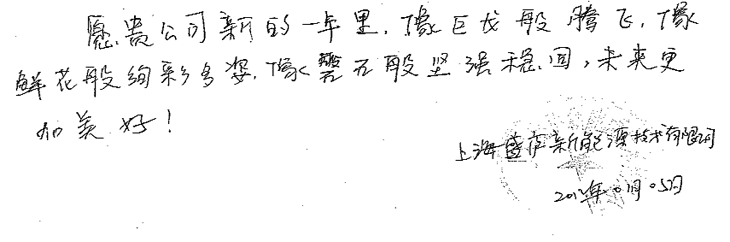 愿贵公司新的一年里，像巨龙般腾飞，像
鲜花般绚彩多姿，像磐石般坚强稳固，未来更
加美好！
上海盛萨新能源技术有限公司
2012年01月05日